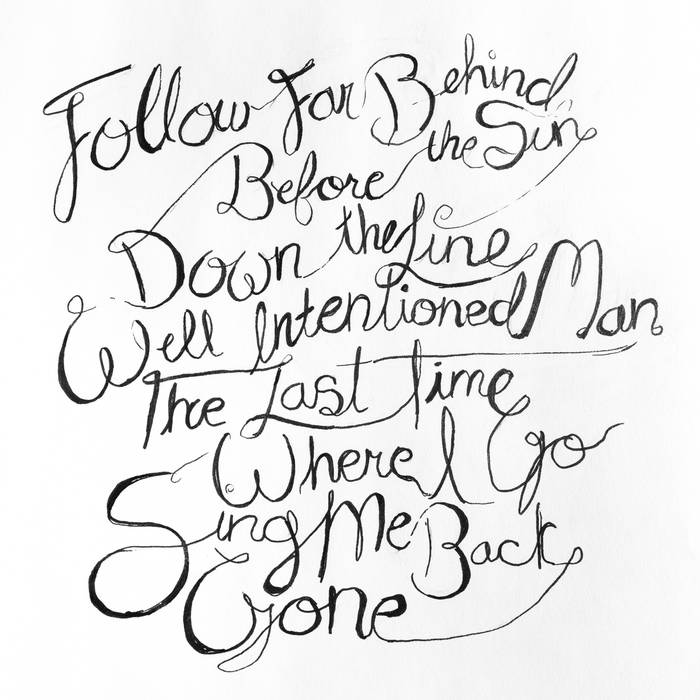 Follow Far Behind
the Sun
Before
Down the Line
Well Intentioned Man
The Last Time
Where I Go
Sing Me Back
Gone